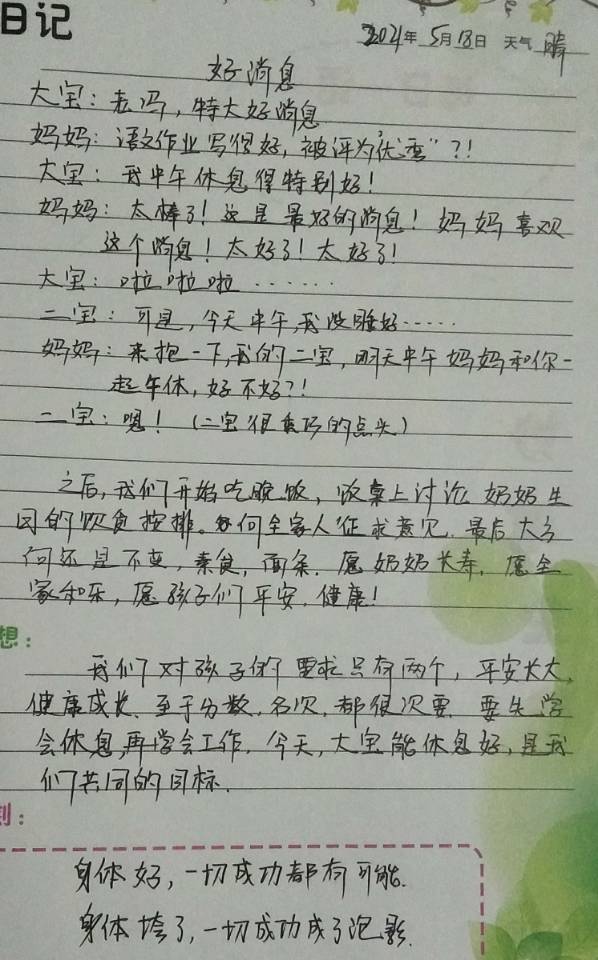 日记
2021年 5月18日 天气 晴
好消息
大宝：老冯，特大好消息
妈妈：语文作业写得好，被评为"优秀"？！
大宝：我中午休息得特别好！
妈妈：太棒了！这是最好的消息！妈妈喜欢
这个消息！太好了！太好了！
大宝：啦啦啦……
二宝：可是，今天中午，我没睡好……
妈妈：来抱一下，我的二宝，明天中午妈妈和你一
起午休，好不好？！
二宝：嗯！（二宝很乖巧的点头）
之后，我们开始吃晚饭，饭桌上讨论奶奶生
日的饮食按排。向全家人征求意见.最后大方
向还是不变，素食，面条.愿奶奶长寿，愿全
家和乐，愿孩子们平安.健康！
想：
我们对孩子的要求只有两个，平安长大，
健康成长.至于分数.名次.都很次要.要先学
会休息，再学会工作.今天，大宝能休息好，是我
们共同的目标.
刻：
身体好，一切成功都有可能.
身体垮了，一切成功成了泡影.